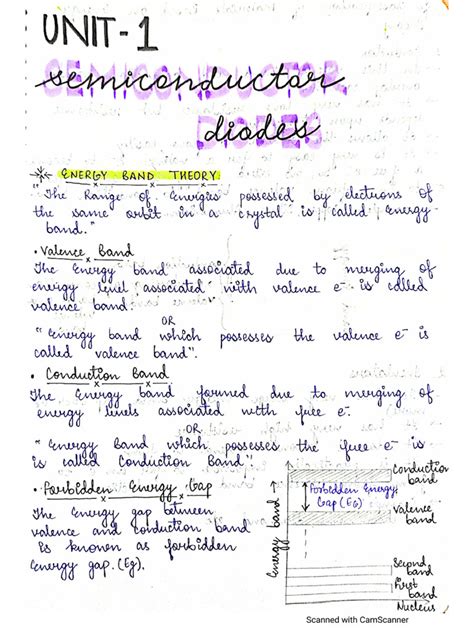 UNIT-1
SEMICONDUCTOR
semiconductor
DIODES
diodes
ENERGY BAND THEORY
"The Range of Energies possessed by electrons of
the same orbit in a crystal is called energy
band."
• Valence Band
The Energy band associated due to merging of
energy level associated with valence e⁻ is called
valence band.
OR
"Energy band which possesses the valence e⁻ is
called valence band".
• Conduction Band
The Energy band formed due to merging of
energy levels associated with free e⁻
OR
"Energy Band which possesses the free e⁻ is
is called Conduction Band".
• Forbidden Energy Gap
The Energy gap between
valence and conduction band
is known as forbidden
energy gap. (Eg).
Energy band →
Conduction
band
Forbidden Energy
Gap (EG)
Valence
band
Second
band
First
band
Nucleus
Scanned with CamScanner